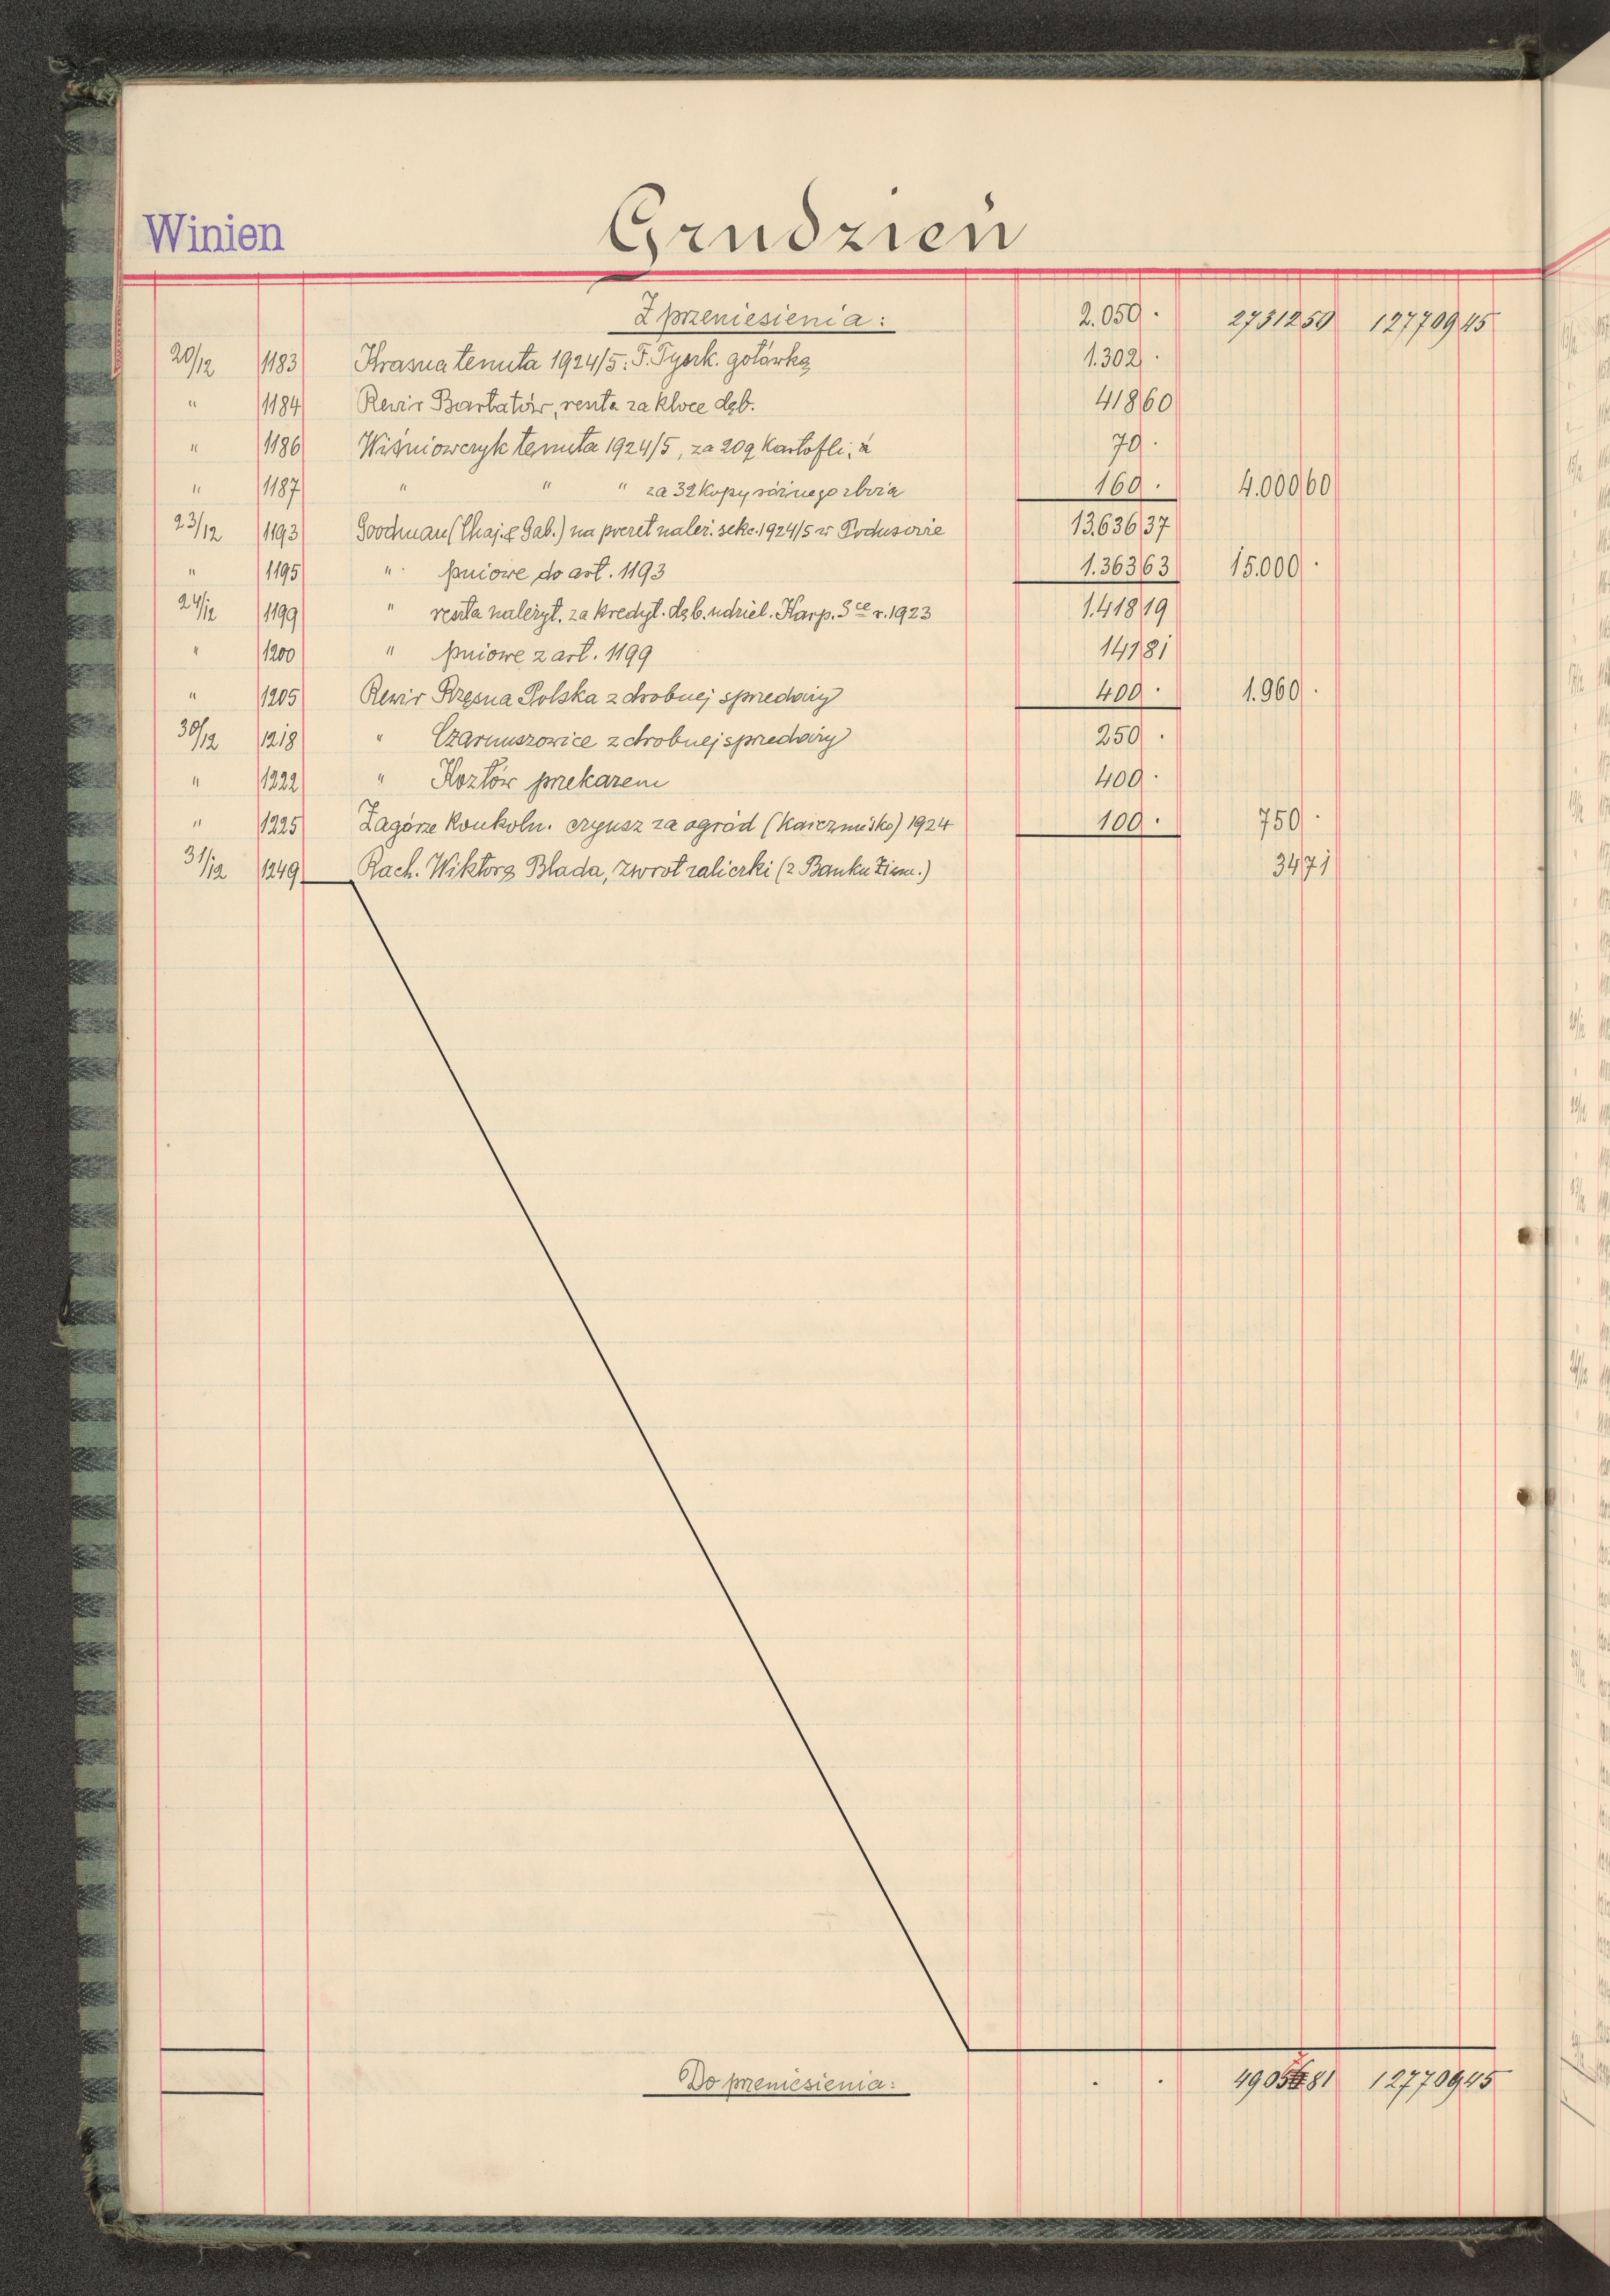 Winien
Grudzień
Z przeniesienia: 2.050 · 27312 50 127709 45
20/12 1183 Krasna tenuta 1924/5: F. Tysrk. gotówką 1.302 ·
" 1184 Rewir Barbatów, reszta za kloce dęb. 418 60
" 1186 Wiśniowczyk tenuta 1924/5, za 20q Kartofli, à 70 ·
" 1187 " " " za 32 Kopy różnego zboża 160 · 4.000 60
23/12 1193 Goodman (Chaj. & Gab.) na poczet należ. sekc. 1924/5 w Podusowie 13.636 37
" 1195 " pniowe do art. 1193 1.363 63 15.000 ·
24/12 1199 " reszta należyt. za kredyt. dęb. udziel. Karp. Sce r. 1923 1.418 19
" 1200 " pniowe z art. 1199 141 81
" 1205 Rewir Rzęsna Polska z drobnej sprzedaży 400 · 1.960 ·
30/12 1218 " Czarnuszowice z drobnej sprzedaży 250 ·
" 1222 " Kozłów przekazem 400 ·
" 1225 Zagórze Koukoln. czynsz za ogród 1924 100 · 750 ·
31/12 1249 Rach. Wiktora Blada, zwrot zaliczki (z Banku Ziem.) 34 71
Do przeniesienia: · · 81 127709 45